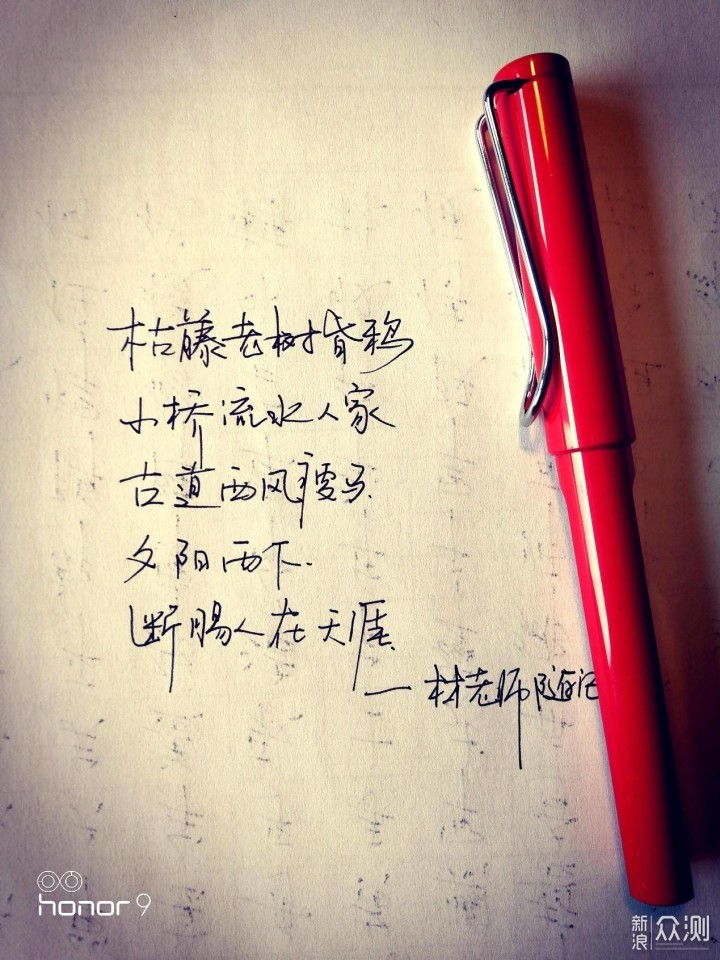 枯藤老树昏鸦
小桥流水人家
古道西风瘦马
夕阳西下.
断肠人在天涯
—林老师随记
honor 9
新浪众测